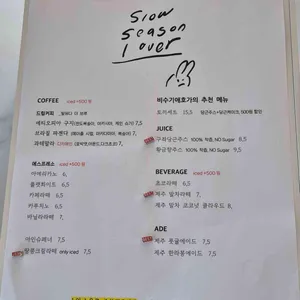 Slow
Season
lover
COFFEE iced +500원
드립커피
에티오피아 구지
브라질
과테말라
에스프레소 iced +500원
아메리카노 6,
플랫화이트 6,5
카페라떼 6,5
카푸치노 6,5
바닐라라떼 7,
아인슈페너 7,5
only iced 7,5
비수기애호가의 추천 메뉴
토끼세트 15,5
JUICE
구좌당근주스 100% 착즙, NO Sugar 8,5
황금향주스 100% 착즙, NO Sugar 9,5
BEVERAGE iced +500원
초코라떼 6,5
제주 말차라떼 7,
제주 말차 코코넛 클라우드 8,
ADE
제주 풋귤에이드 7,5
제주 한라봉에이드 7,5